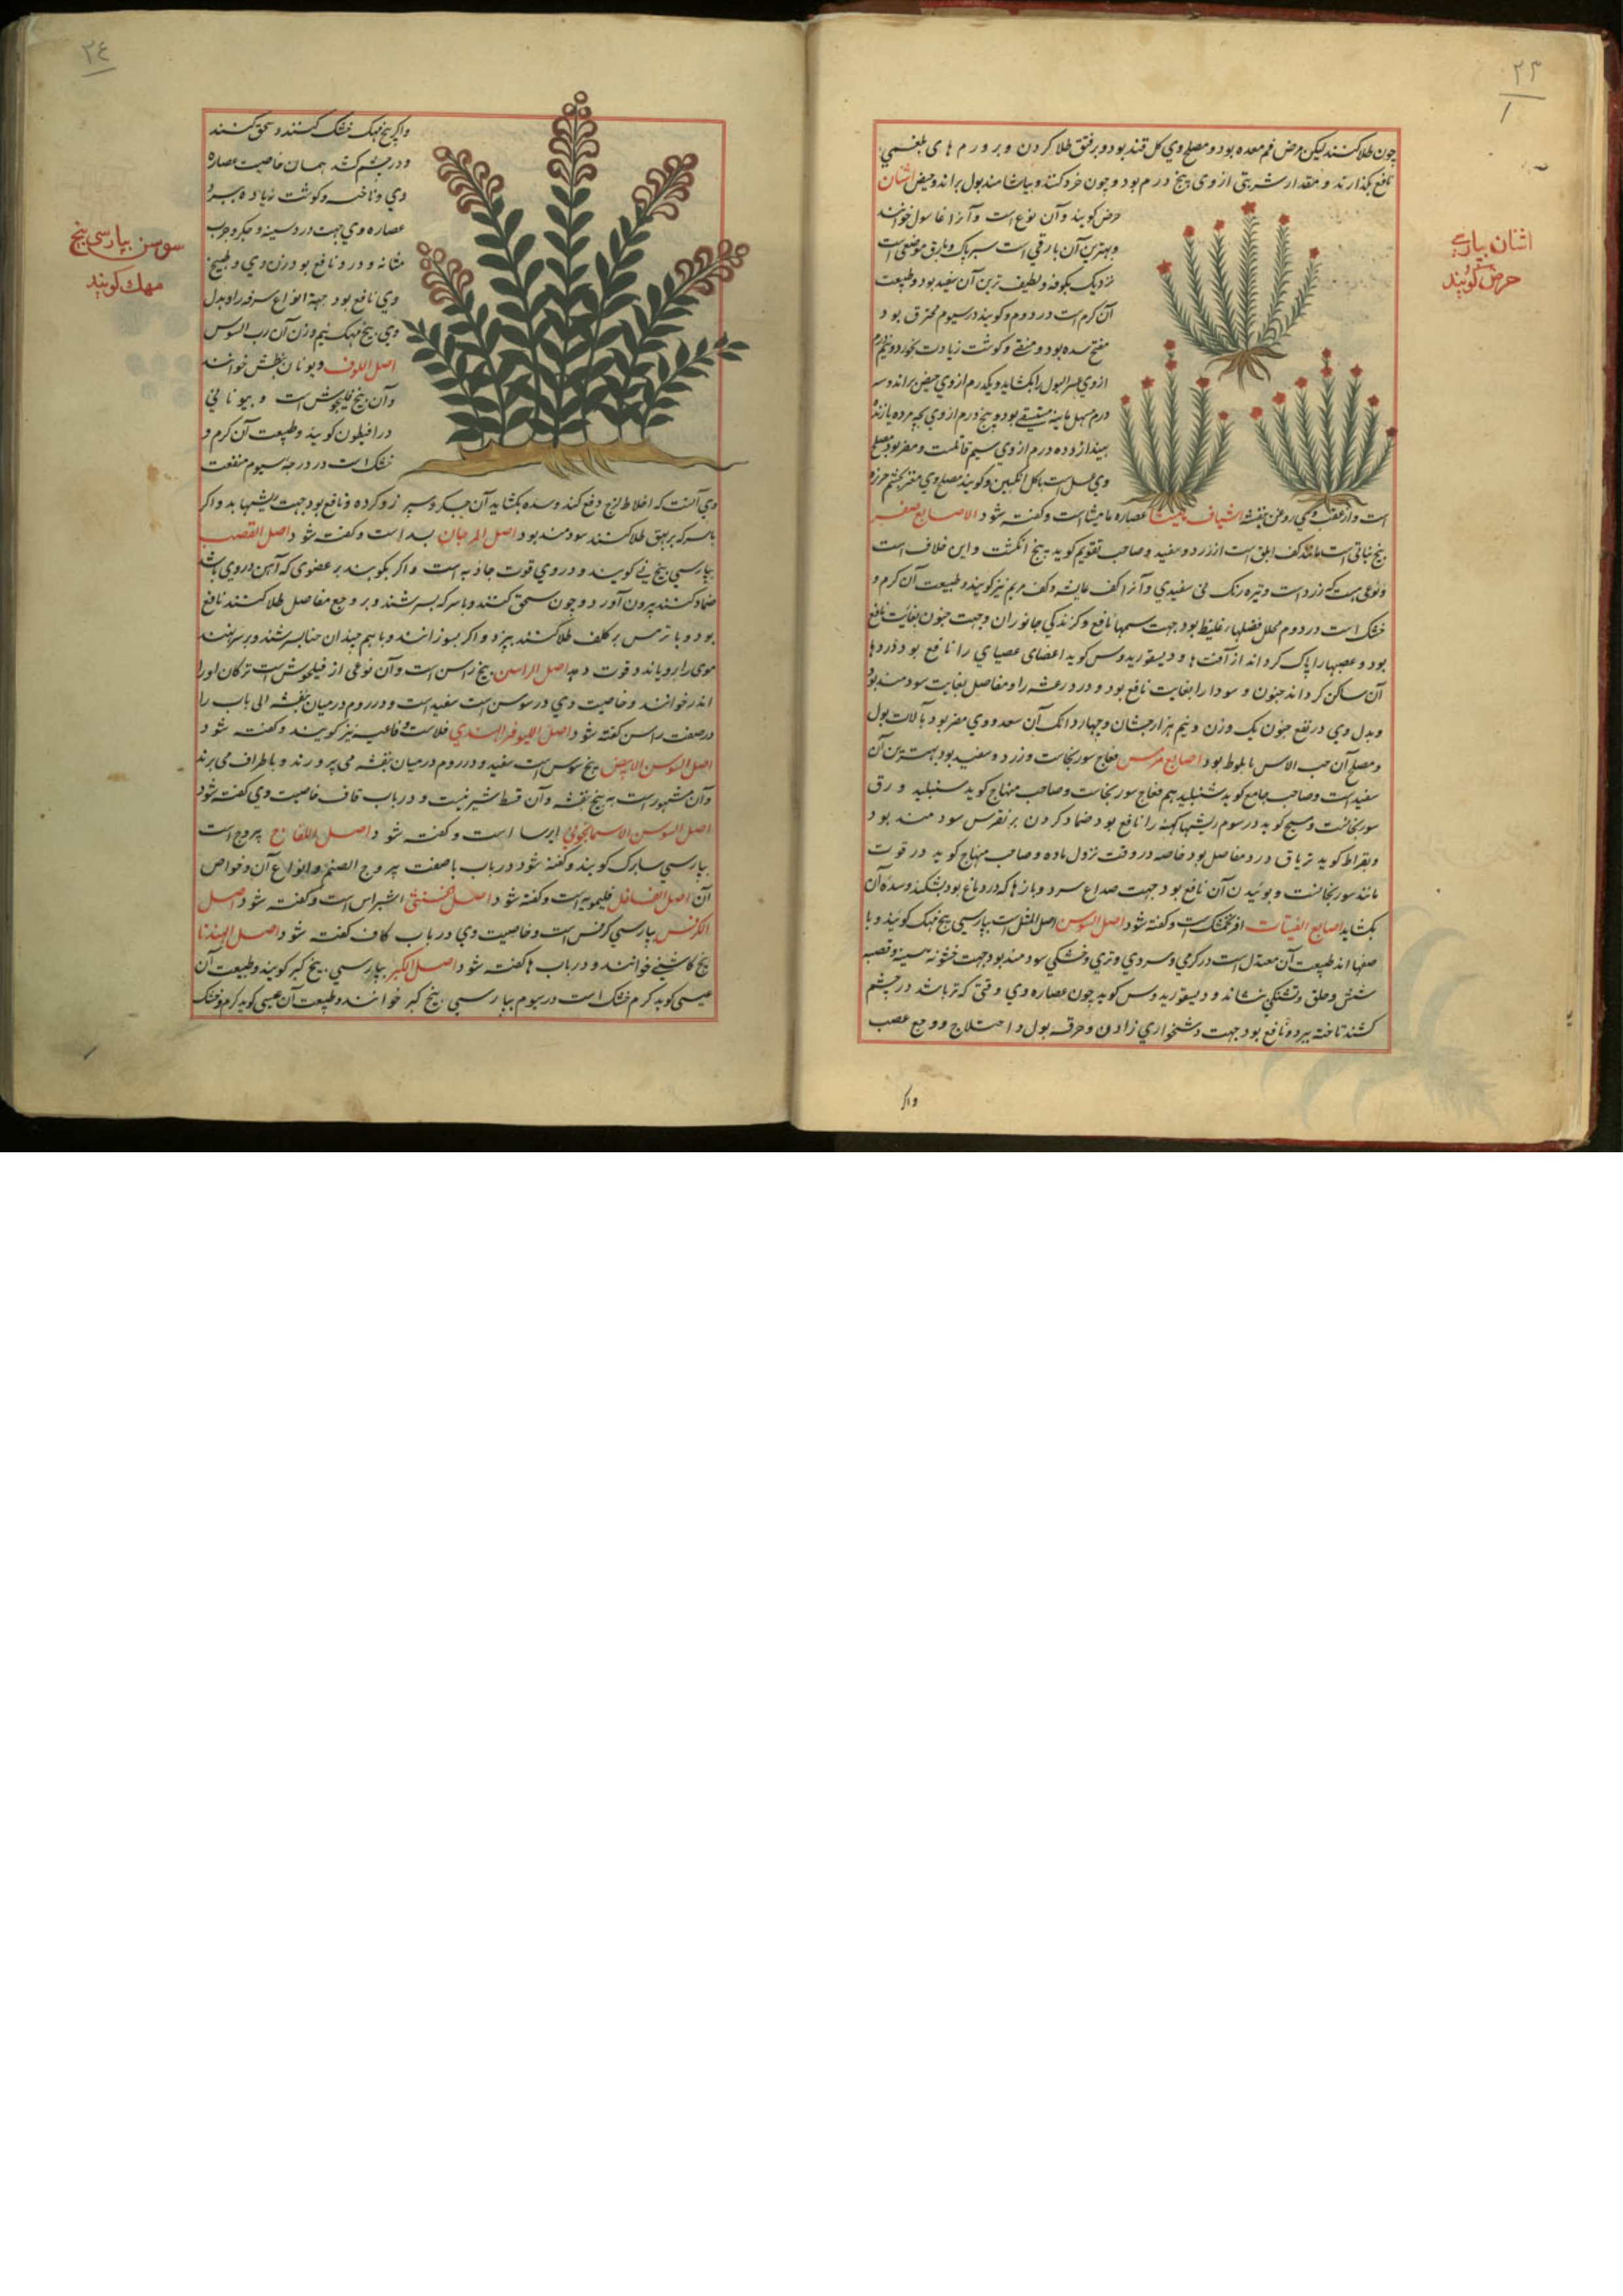 ٢٣
چون طلا کنند لیکن مرض فم معده بود و مصلح وی کل قند بود و بر فتق طلا کردن و بر ورم های بلغمی
نافع بکذارند و مقدار شربتی از وی پنج درم بود و چون خرد کنند و بیاشامند بول براند و حیض اشنان
حرض کویند وآن نوع است وآنرا غاسول خوانند
وبهترین آن بارقی است سبز باک وبارق موضعی است
نزدیک بکوفه ولطیف ترین آن سفید بود وطبیعت
آن کرم است در دوم وکویند در سیوم محرق بود
مفتح سده بود و منقی وکوشت زیادت بخورد و نیم درم
از وی عسر البول را بکشاید ویکدرم از وی حیض براند وسه
درم مسهل مایه بود و پنج درم از وی بچه مرده یا زنده
بیندازد و ده درم از وی سم قاتلست و مضر بود مصلح
وی عسل است
اشنان بپارسی
حرض کویند
است و از عقب وی روغن بنفشه اشیاف مامیثا عصاره مامیثا است وکفته شود الاصابع صفر
بیخ نباتی است مانند کف ابلق است از زرد و سفید وصاحب تقویم کوید بیخ انکشت واین خلاف است
ونوعی هست که زرد است وتیره رنک نی سفیدی وآنرا کف عایشه وکف مریم نیز کویند وطبیعت آن کرم و
خشک است در دوم محلل فضلهاء غلیظ بود جهت سمها نافع وکزندکی جانوران وجهت جنون بغایت نافع
بود و عصبها را پاک کرداند از آفت ها و دیسقوریدوس کوید اعضای عصبای را نافع بود و دردها
آن ساکن کرداند جنون و سودا را بغایت نافع بود و درد رعشه را و مفاصل بغایت سودمند بود
وبدل وی در نفع جنون یک وزن ونیم هزارجشان وچهار دانک آن سعد و وی مضر بود بآلات بول
ومصلح آن حب الاس با بلوط بود اصابع هرمس فقاح سورنجانست وزرد و سفید بود بهترین آن
سفید است وصاحب جامع کوید شنبلید هم فقاح سورنجانست وصاحب منهاج کوید سنبلید ورق
سورنجانست ومسیح کوید در سوم ریشها کهنه را نافع بود ضماد کردن بر نقرس سودمند بود
وبقراط کوید تریاق درد مفاصل بود خاصه در وقت نزول ماده وصاحب منهاج کوید در قوت
مانند سورنجانست وبوئیدن آن نافع بود جهت صداع سرد وبادها که در دماغ بود بشکند وسده آن
بکشاید اصابع الفتیات افرنجمشک است وکفته شود اصل السوس اصل المثل است بپارسی بیخ مهک کویند وبا
صفها اند طبیعت آن معتدل است در کرمی وسردی وتری وخشکی سودمند بود جهت خشونة سینه وقصبه
شش وحلق وتشنکی بنشاند و دیسقوریدوس کوید چون عصاره وی وقتی که تر باشد در چشم
کشند ناخنه ببرد و نافع بود جهت دشخواری زادن وحرقه بول و اختلاج ووجع عصب
واکر
٢٤
واکر بیخ مهک خشک کنند و سحق کنند
ودر چشم کشند همان خاصیت عصاره
دی وناخنه وکوشت زیاده ببرد
عصاره وی جهت درد سینه وجکر وجرب
مثانه و درد نافع بود وزن وی وطبیخ
وی نافع بود جهة انواع سرفه را وبدل
وی بیخ مهک نیم وزن آن رب السوس
اصل اللوف
وآن بیخ فیلجوش است وبیونانی
درافیطون کویند وطبیعت آن کرم و
خشک است در درجه سیوم منفعت
سوسن بپارسی بیخ
مهک کویند
وی آنست که اخلاط لزج دفع کند وسده بکشاید آن جکر وسپرز وکرده ونافع بود جهت ریشها بد واکر
با سرکه بر بهق طلا کنند سودمند بود اصل المرجان بسد است وکفته شود اصل القصب
بپارسی بیخ نی کویند و در وی قوت جاذبه است واکر بکوبند بر عضوی که آهن در وی باشد
ضماد کنند بیرون آورد وچون سحق کنند وبا سرکه بسرشند وبر وجع مفاصل طلا کنند نافع
بود وبا ترمس بر کلف طلا کنند ببرد واکر بسوزانند وبا هم چندان حنا بسرشند وبر سر نهند
موی را برویاند وقوت دهد اصل الراسن بیخ راسن است وآن نوعی از فیلجوش است ترکان اورا
اندر خوانند وخاصیت وی در سوسن است سفید است ودر روم در میان بنفشه الی باب را
در صفت راسن کفته شود اصل النیلوفر الهندی فلاست وفاغیه نیز کویند وکفته شود
اصل السوسن الابیض بیخ سوسن است سفید ودر روم در میان بنفشه می پرورند وباطراف می برند
وآن مشهور است به بیخ بنفشه وآن قسط شیرینیت ودر باب قاف خاصیت وی کفته شود
اصل السوسن الاسمانجونی ایرسا است وکفته شود اصل اللفاح یبروج است
بپارسی سابزک کویند وکفته شود در باب یا صفت یبروج الصنم وانواع آن وخواص
آن اصل الفلفل فلیمویه است وکفته شود اصل خنثی اشراس است وکفته شود اصل
الکرفس بپارسی کرفس است وخاصیت وی در باب کاف کفته شود اصل الهندبا
بیخ کاسنی خوانند ودر باب ها کفته شود اصل الکبر بپارسی بیخ کبر کویند وطبیعت آن
عیسی کوید کرم خشک است در سیوم بپارسی بیخ کبر خوانند وطبیعت آن عیسی کوید کرم وخشک